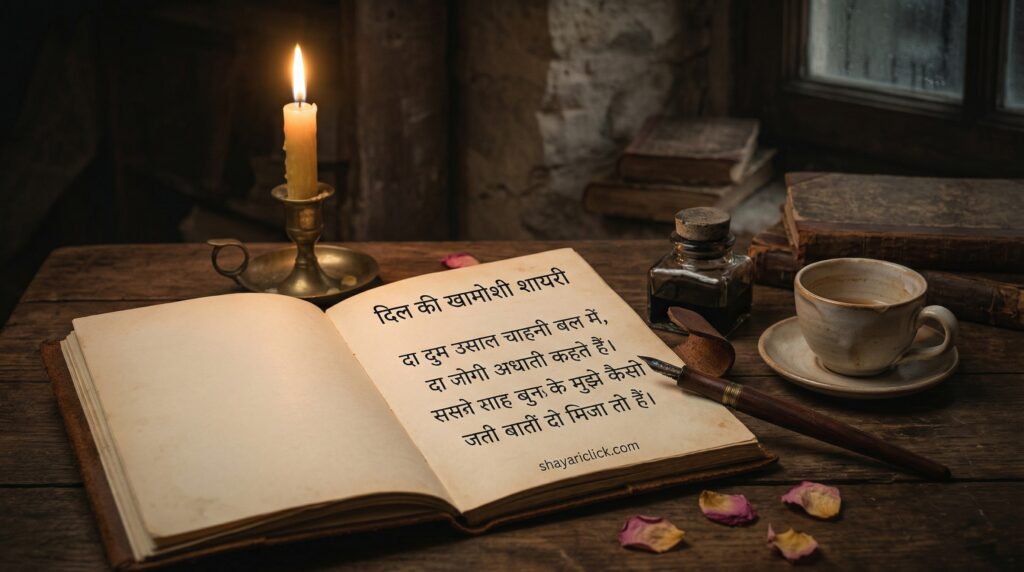 दिल की खामोशी शायरी
दा दुम उसाल चाहनी बल में,
दा जोगी अधाती कहते हैं।
ससने साह बुन के मुझे कैसो
जती बातीं दो मिजा तो हैं।
shayariclick.com